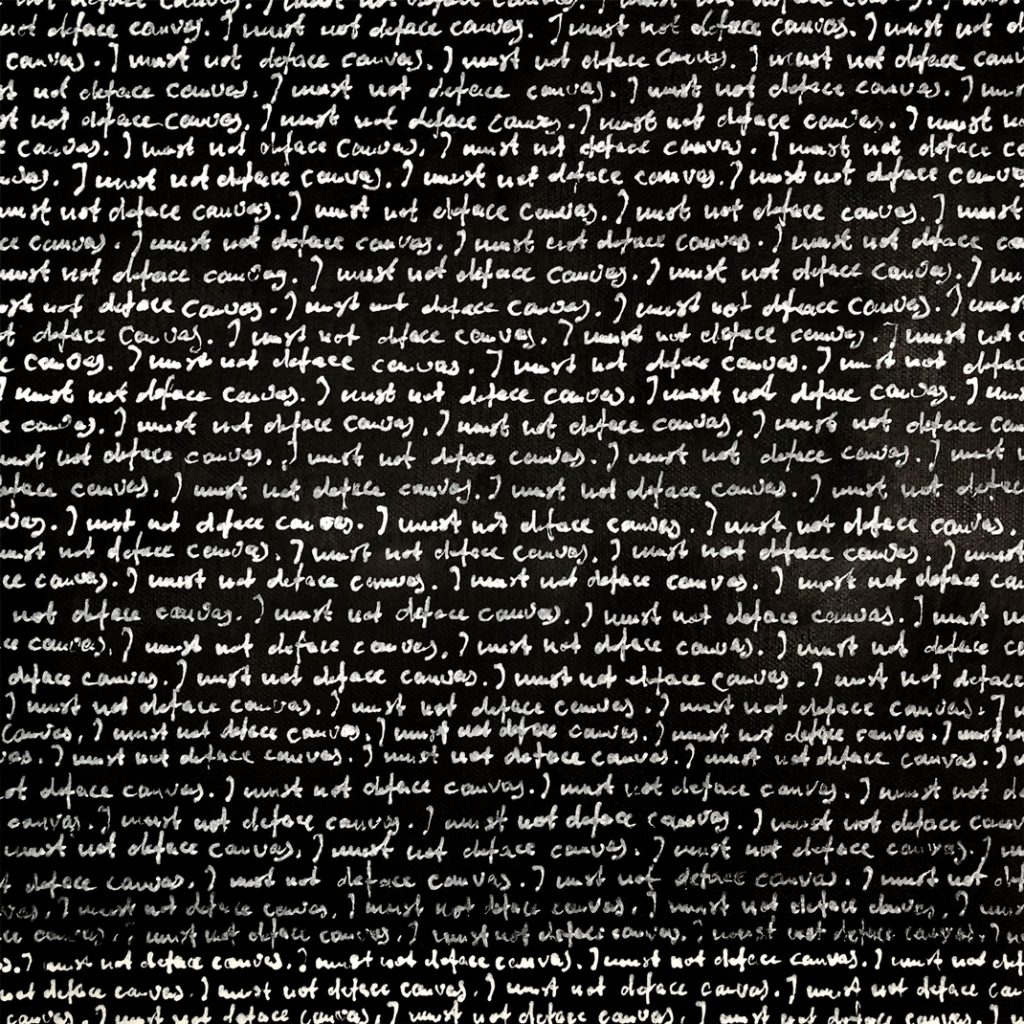 not deface canvas. I must not deface canvas. I must not deface canvas. I must not
not deface canvas. I must not deface canvas. I must not deface canvas. I must not d
canvas. I must not deface canvas. I must not deface canvas. I must not deface canv
st not deface canvas. I must not deface canvas. I must not deface canvas. I mus
st not deface canvas. I must not deface canvas. I must not deface canvas. I must no
ce canvas. I must not deface canvas. I must not deface canvas. I must not deface ca
nvas. I must not deface canvas. I must not deface canvas. I must not deface canvas
must not deface canvas. I must not deface canvas. I must not deface canvas. I must
ce canvas. I must not deface canvas. I must not deface canvas. I must not deface ca
must not deface canvas. I must not deface canvas. I must not deface canvas. I mu
ust not deface canvas. I must not deface canvas. I must not deface canvas. I must
ot deface canvas. I must not deface canvas. I must not deface canvas. I must not d
e canvas. I must not deface canvas. I must not deface canvas. I must not deface
I must not deface canvas. I must not deface canvas. I must not deface canvas. I mus
e canvas. I must not deface canvas. I must not deface canvas. I must not deface can
must not deface canvas. I must not deface canvas. I must not deface canvas. I must n
deface canvas. I must not deface canvas. I must not deface canvas. I must not deface
vas. I must not deface canvas. I must not deface canvas. I must not deface canvas.
must not deface canvas. I must not deface canvas. I must not deface canvas. I must
ce canvas. I must not deface canvas. I must not deface canvas. I must not deface can
not deface canvas. I must not deface canvas. I must not deface canvas. I must n
e canvas. I must not deface canvas. I must not deface canvas. I must not deface c
deface canvas. I must not deface canvas. I must not deface canvas. I must not deface
I must not deface canvas. I must not deface canvas. I must not deface canvas. I m
canvas. I must not deface canvas. I must not deface canvas. I must not deface canvas. I must n
as. I must not deface canvas. I must not deface canvas. I must not deface canvas. I
ot deface canvas. I must not deface canvas. I must not deface canvas. I must not d
canvas. I must not deface canvas. I must not deface canvas. I must not deface canv
must not deface canvas. I must not deface canvas. I must not deface canvas. I m
t deface canvas. I must not deface canvas. I must not deface canvas. I must not def
vas. I must not deface canvas. I must not deface canvas. I must not deface canvas. I mus
ce canvas. I must not deface canvas. I must not deface canvas. I must not deface canvas. I m
s. I must not deface canvas. I must not deface canvas. I must not deface canvas. I must not def
not deface canvas. I must not deface canvas. I must not deface canvas. I must not deface ca
canvas. I must not deface canvas. I must not deface canvas. I must not deface canvas.